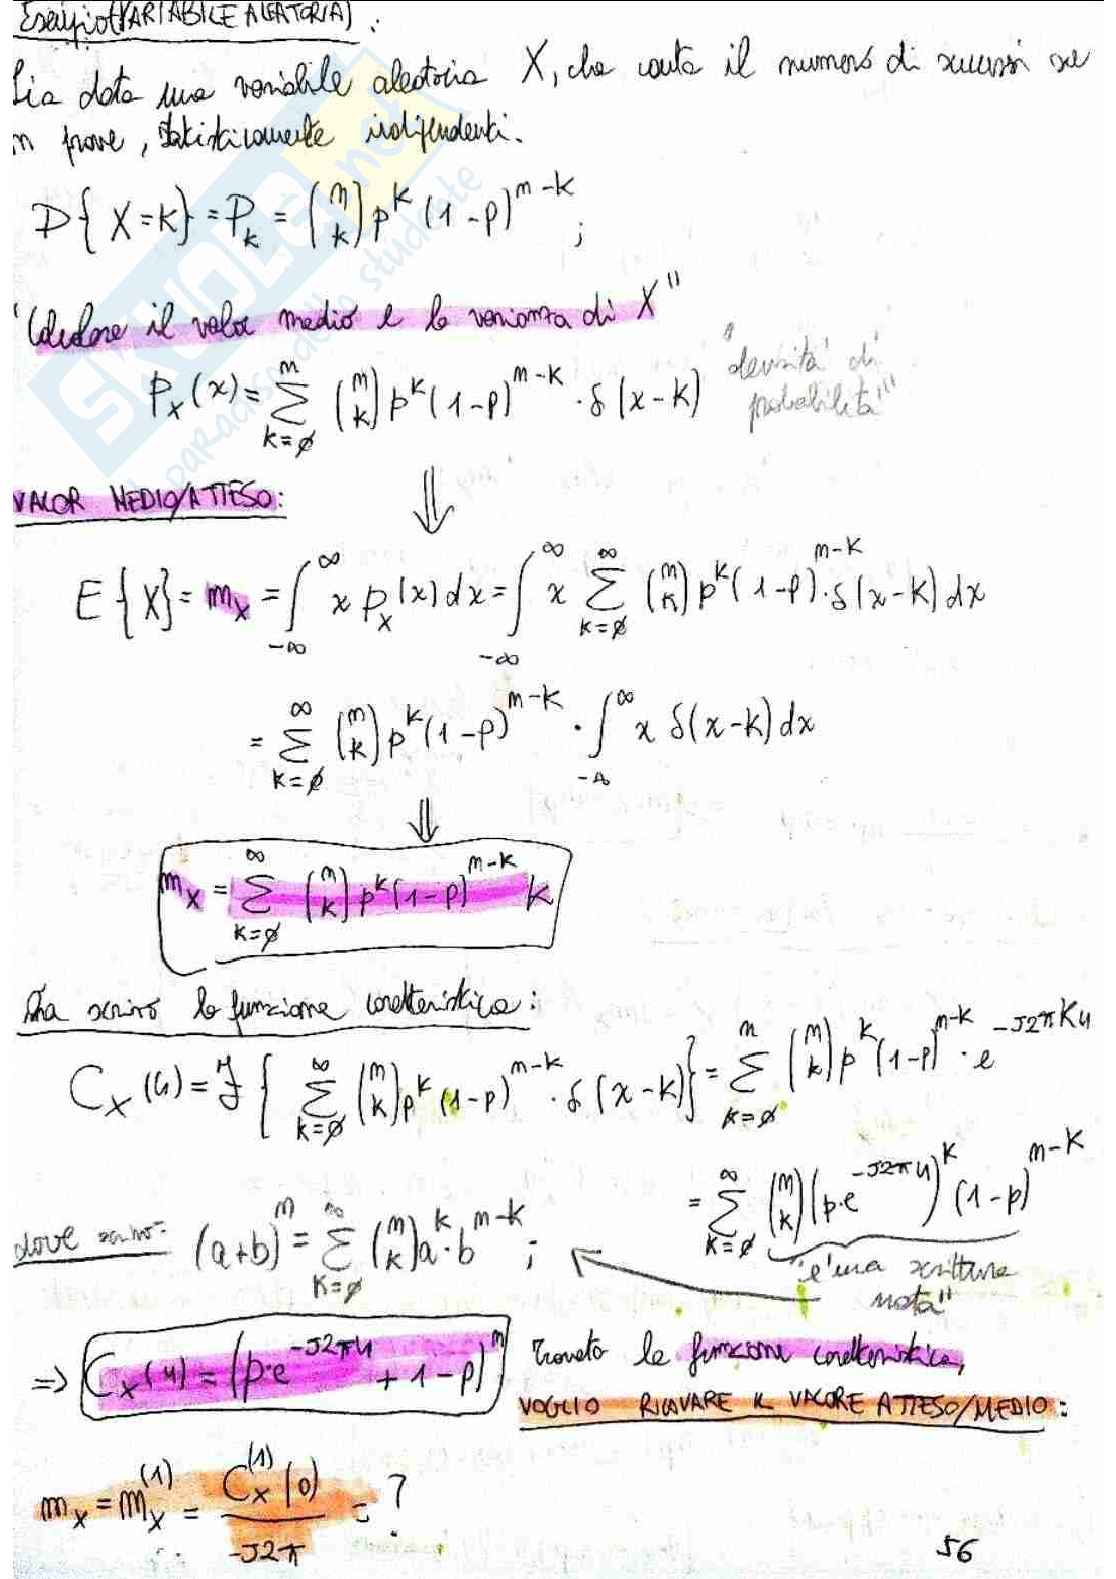 Esempio (VARIABILE ALEATORIA):
Sia data una variabile aleatoria X, che conta il numero di successi su
n prove, statisticamente indipendenti.
P{X=K} = P_k = (n k) p^k (1-p)^{n-k};
"Calcolare il valor medio e la varianza di X"
p_x(x) = Σ_{k=0}^{n} (n k) p^k (1-p)^{n-k} · δ(x-k) "densità di
probabilità"
VALOR MEDIO/ATTESO:
⇓
E{X} = m_x = ∫_{-∞}^{∞} x p_x(x) dx = ∫_{-∞}^{∞} x Σ_{k=0}^{∞} (n k) p^k (1-p)^{n-k} · δ(x-k) dx
= Σ_{k=0}^{∞} (n k) p^k (1-p)^{n-k} · ∫_{-∞}^{∞} x δ(x-k) dx
⇓
m_x = Σ_{k=0}^{∞} (n k) p^k (1-p)^{n-k} k
Ora scrivo la funzione caratteristica:
C_x(u) = F{ Σ_{k=0}^{∞} (n k) p^k (1-p)^{n-k} · δ(x-k)} = Σ_{k=0}^{n} (n k) p^k (1-p)^{n-k} · e^{-J2πKu}
= Σ_{k=0}^{∞} (n k) (p·e^{-J2πu})^k (1-p)^{n-k}
"è una scrittura
nota"
dove scrivo: (a+b)^n = Σ_{k=0}^{∞} (n k) a^k · b^{n-k};
⇒ C_x(u) = (p·e^{-J2πu} + 1-p)^n Trovata la funzione caratteristica,
VOGLIO RICAVARE IL VALORE ATTESO/MEDIO:
m_x = m_x^{(1)} = C_x^{(1)}(0) / -J2π = ?
56
SKUOLA.net
il paradiso dello studente